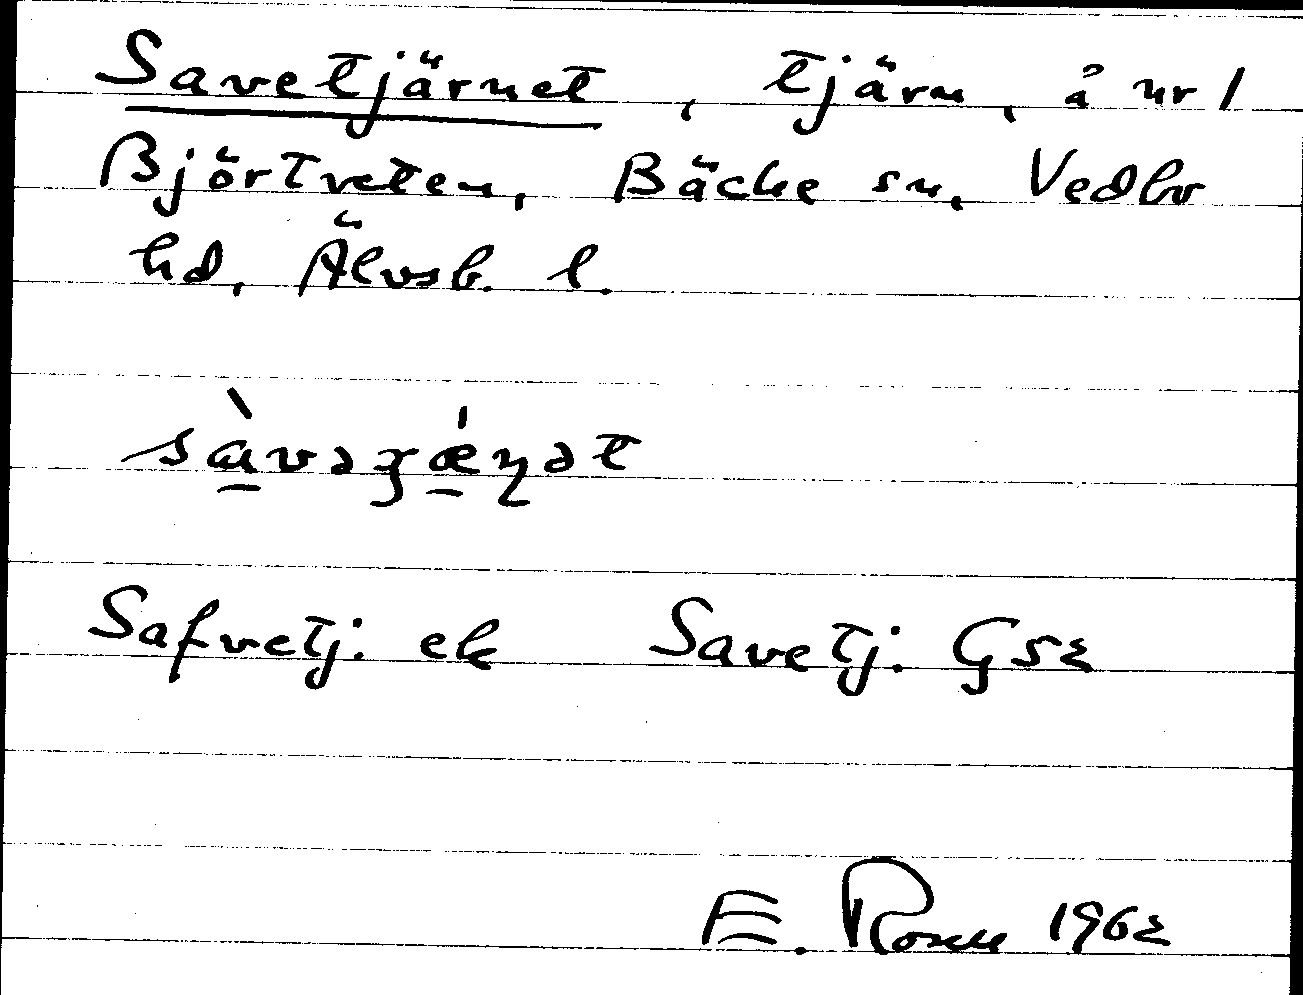 Savetjärnet, tjärn, å nr 1
Björtveten, Bäcke sn, Vedbo
hd, Älvsb. l.
Safvetj: ek Savetj: G52
E. Rosell 1962